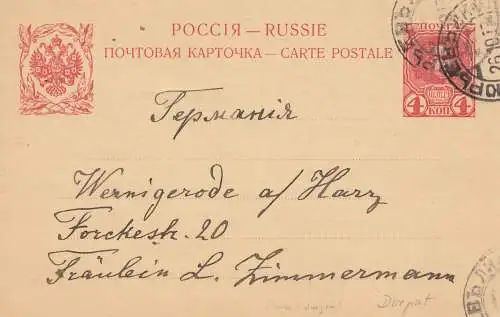 РОССІЯ — RUSSIE
ПОЧТОВАЯ КАРТОЧКА — CARTE POSTALE
ПОЧТ
4 4
КОП
Германія
Wernigerode a/ Harz
Forckestr. 20
Fräulein L. Zimmermann
Dorpat